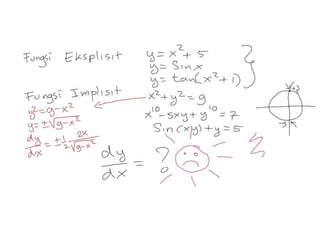 Fungsi Eksplisit
y = x² + 5
y = Sin x
y = tan(x² + 1)
Fungsi Implisit
x² + y² = 9
y² = 9 - x²
y = ±√9-x²
x¹⁰ - 5xy + y¹⁰ = 7
Sin(xy) + y = 5
dy/dx = ± 1/2 2x/√9-x²
dy/dx = ?